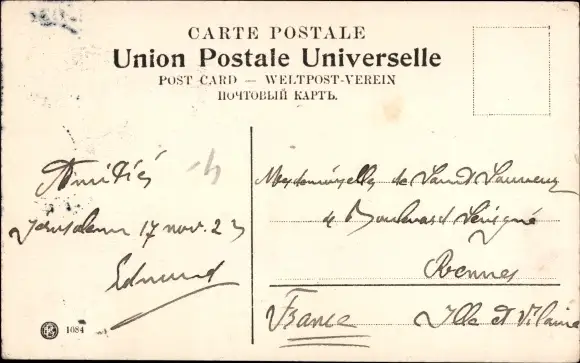 CARTE POSTALE
Union Postale Universelle
POST CARD — WELTPOST-VEREIN
ПОЧТОВЫЙ КАРТЪ.
Amitiés
Jérusalem 17 nov. 23
Edmund
Mesdemoiselles de Saint Sauveur
4 Boulevard Sévigné
Rennes
France Ille et Vilaine
1084